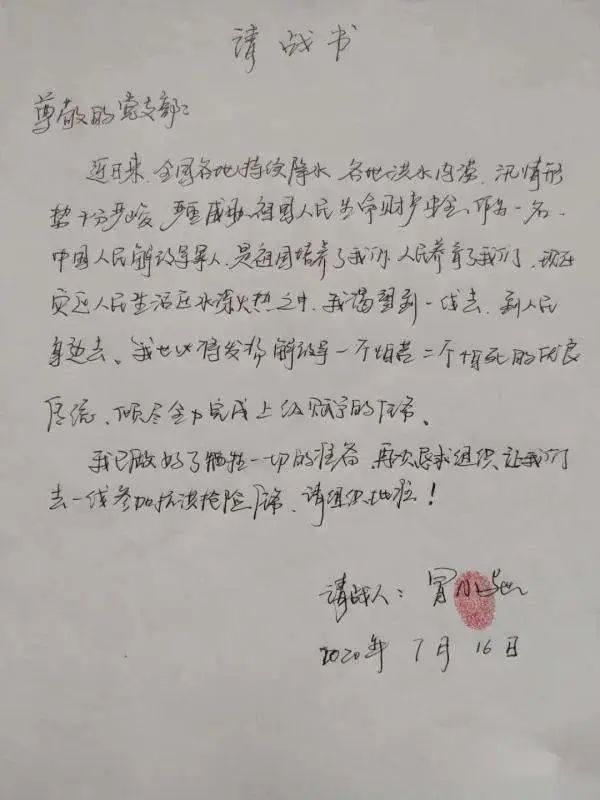 请战书
尊敬的党支部：
近日来，全国各地持续降水，各地洪水内涝，汛情形
势十分严峻，严重威胁祖国人民生命财产安全。作为一名
中国人民解放军军人，是祖国培养了我们，人民养育了我们，现在
灾区人民生活在水深火热之中，我渴望到一线去，到人民
身边去。我也必将发扬解放军一不怕苦二不怕死的优良
传统，倾尽全力完成上级赋予的任务。
我已做好了牺牲一切的准备，再次恳求组织，让我们
去一线参加抗洪抢险任务，请组织批准！
请战人：
2020年 7月 16日